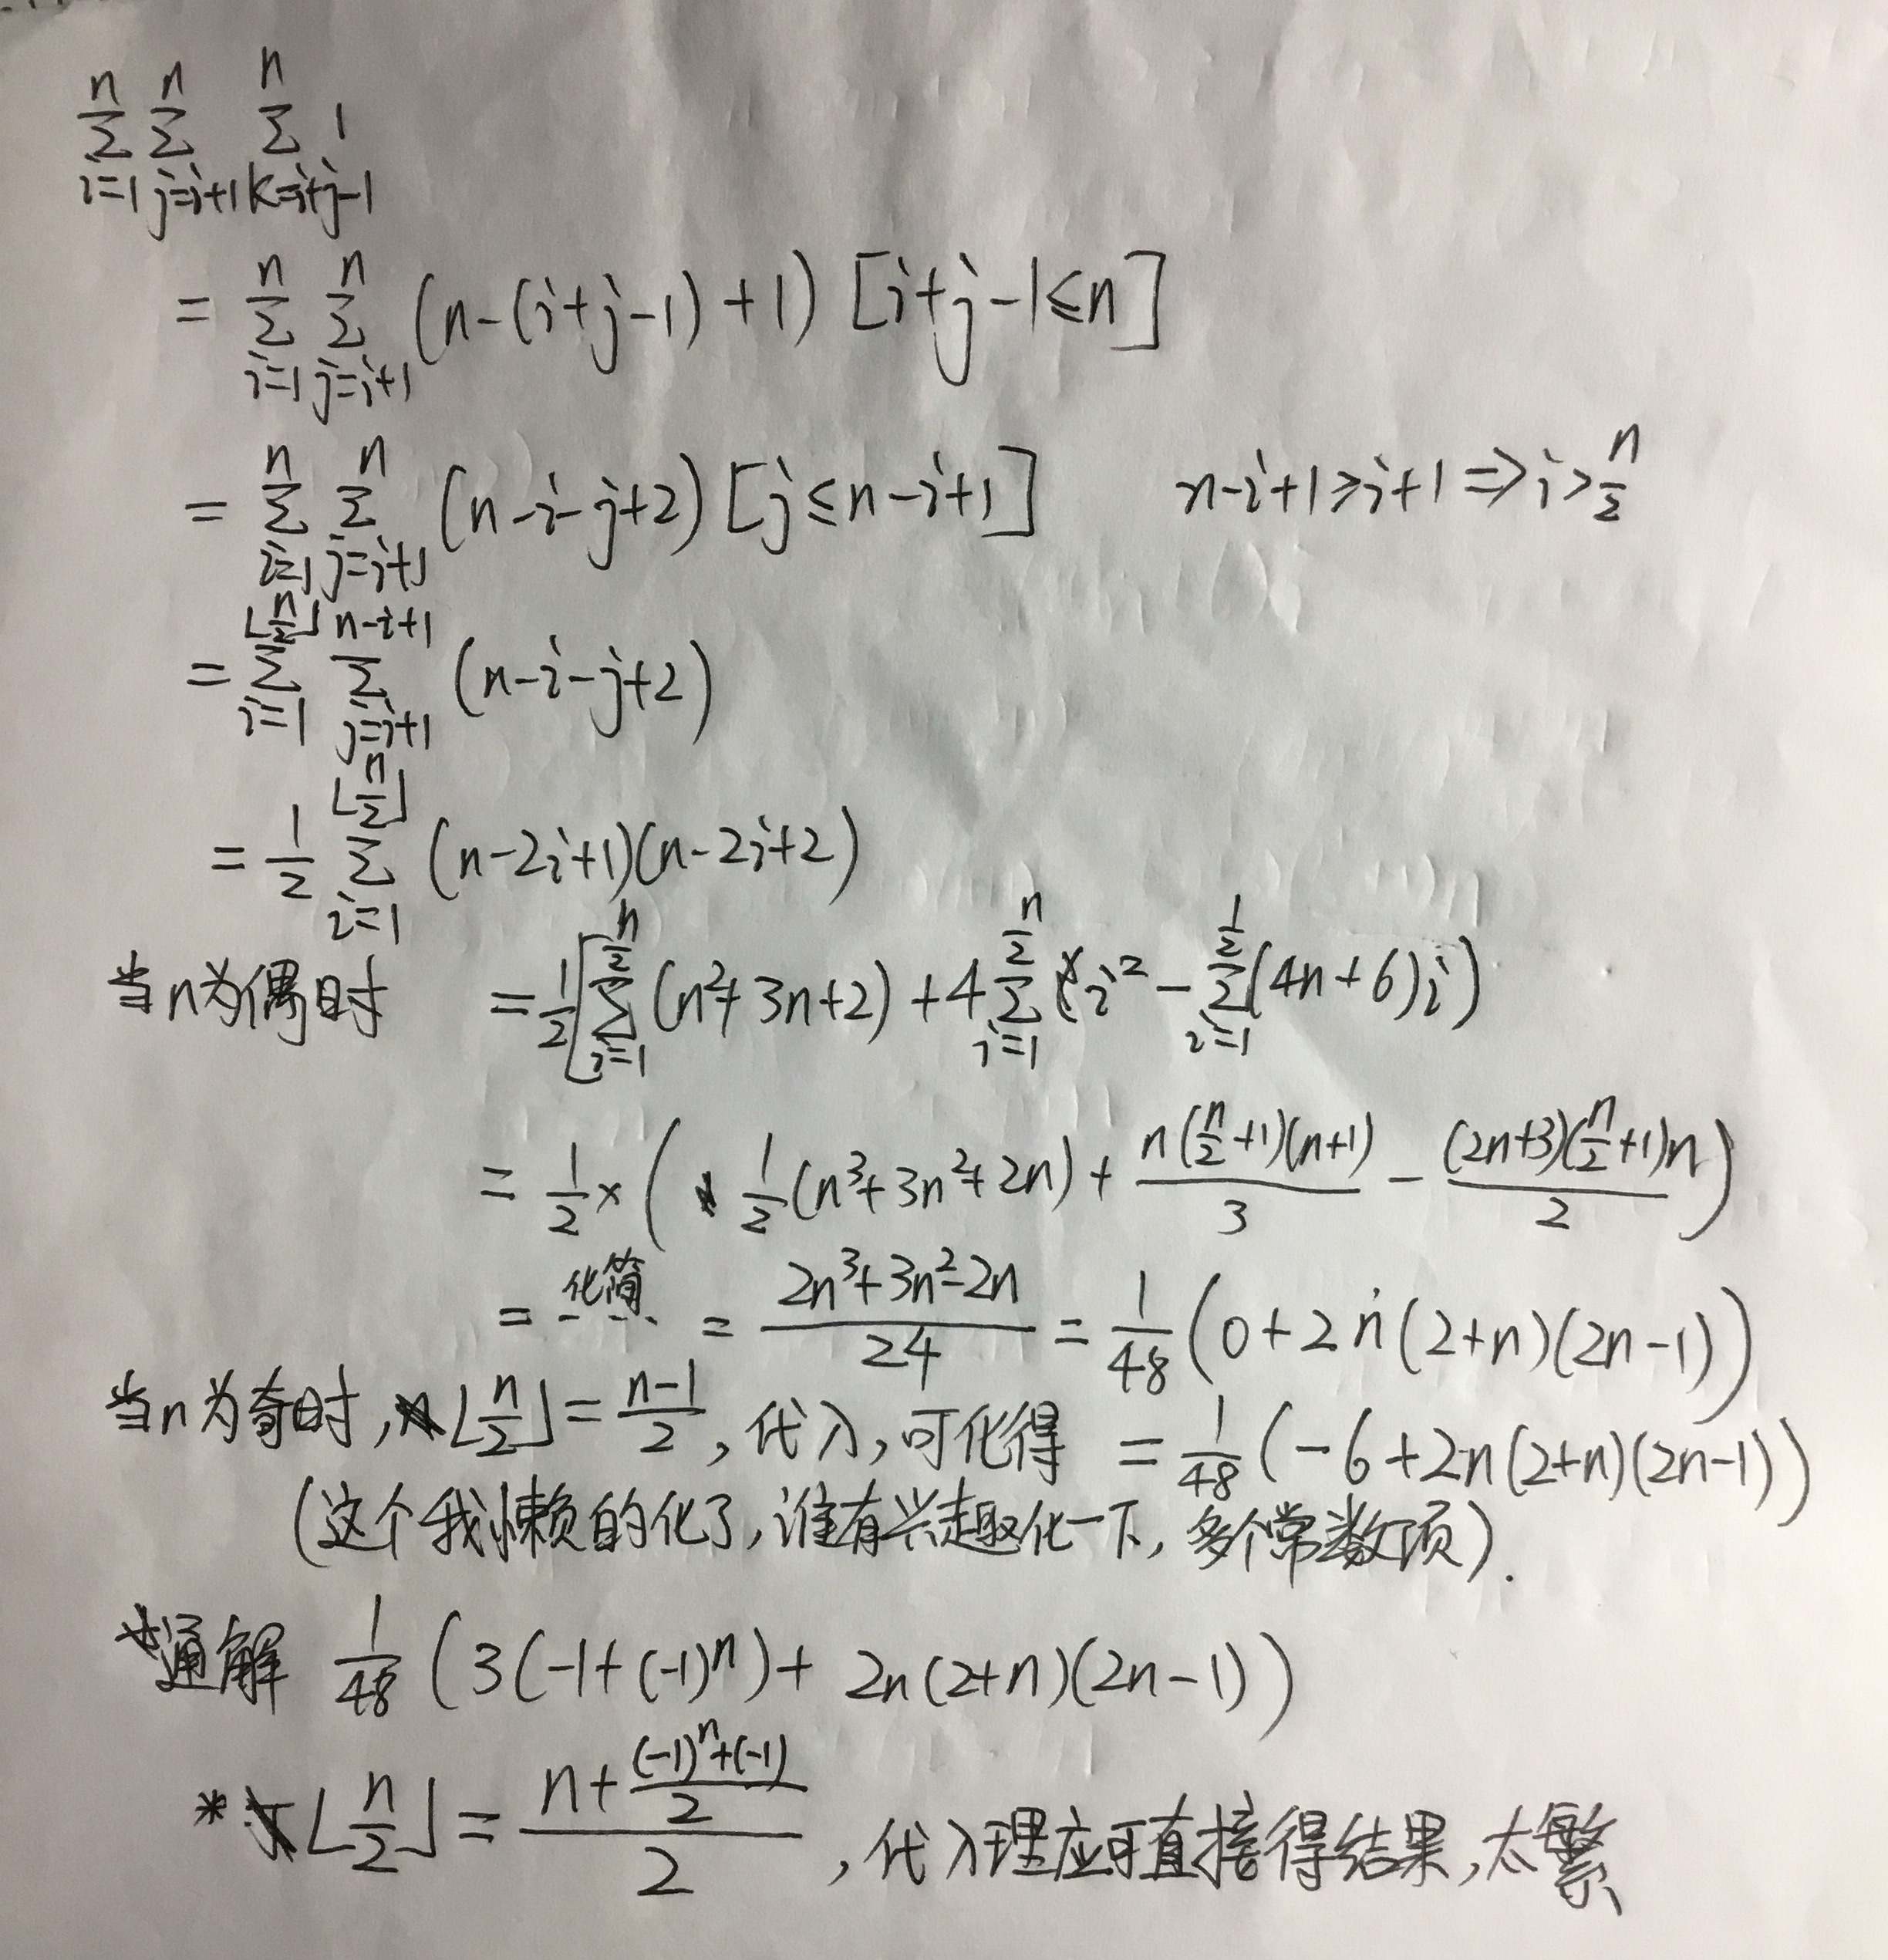 $\sum_{i=1}^{n} \sum_{j=i+1}^{n} \sum_{k=i+j-1}^{n} 1$
$= \sum_{i=1}^{n} \sum_{j=i+1}^{n} (n-(i+j-1)+1) [i+j-1 \leq n]$
$= \sum_{i=1}^{n} \sum_{j=i+1}^{n} (n-i-j+2) [j \leq n-i+1]$ $n-i+1 \geq i+1 \Rightarrow i > \frac{n}{2}$
$= \sum_{i=1}^{\lfloor \frac{n}{2} \rfloor} \sum_{j=i+1}^{n-i+1} (n-i-j+2)$
$= \frac{1}{2} \sum_{i=1}^{\lfloor \frac{n}{2} \rfloor} (n-2i+1)(n-2i+2)$
当n为偶时 $= \frac{1}{2} [ \sum_{i=1}^{\frac{n}{2}} (n^2+3n+2) + 4 \sum_{i=1}^{\frac{n}{2}} i^2 - \sum_{i=1}^{\frac{1}{2}} (4n+6)i )$
$= \frac{1}{2} \times ( \frac{1}{2}(n^3+3n^2+2n) + \frac{n(\frac{n}{2}+1)(n+1)}{3} - \frac{(2n+3)(\frac{n}{2}+1)n}{2} )$
= 化简 $= \frac{2n^3+3n^2-2n}{24} = \frac{1}{48} (0+2n(2+n)(2n-1))$
当n为奇时, $\lfloor \frac{n}{2} \rfloor = \frac{n-1}{2}$, 代入, 可化得 $= \frac{1}{48} (-6+2n(2+n)(2n-1))$
(这个我懒的化了, 谁有兴趣化一下, 多个常数项).
*通解 $\frac{1}{48} (3(-1+(-1)^n) + 2n(2+n)(2n-1))$
* $\lfloor \frac{n}{2} \rfloor = \frac{n+\frac{(-1)^n+(-1)}{2}}{2}$, 代入理应可直接得结果, 太繁